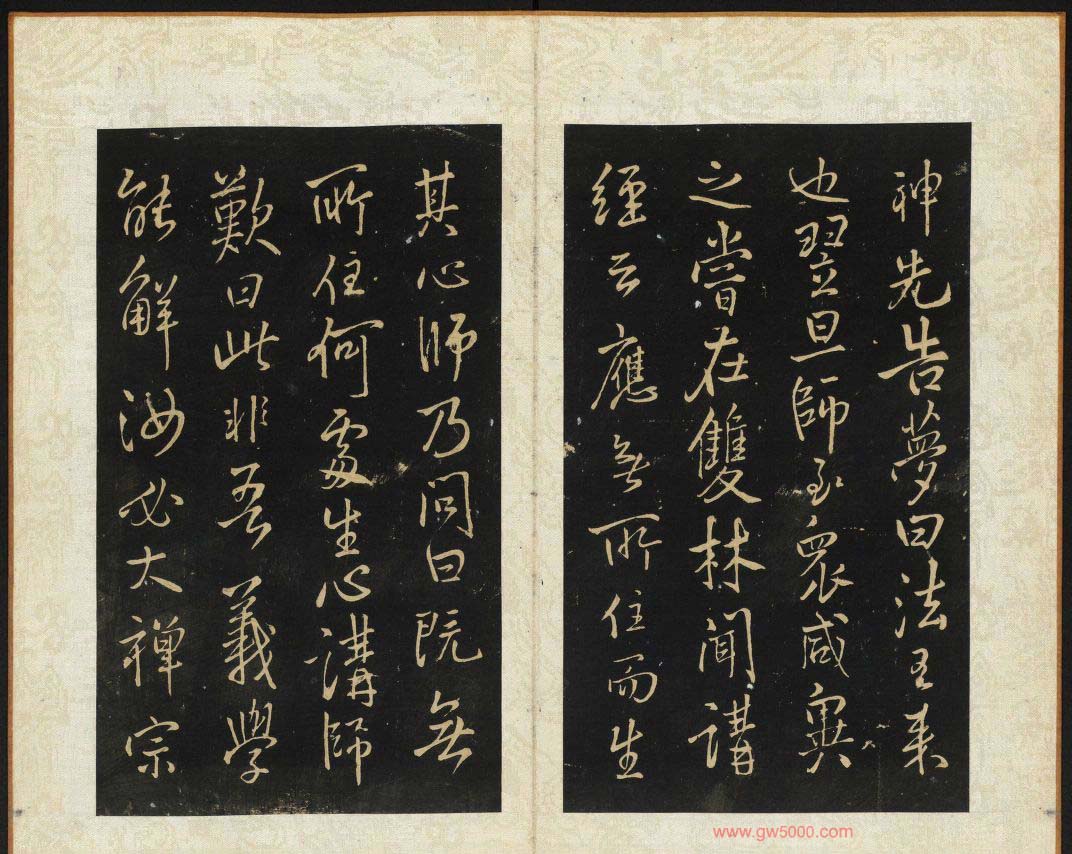 神先告夢曰法王来
也翌旦師至衆咸異
之嘗在雙林聞講
經云應無所住而生
其心師乃問曰既無
所住何處生心講師
歎曰此非吾義學
能解汝必太禅宗
www.gw5000.com